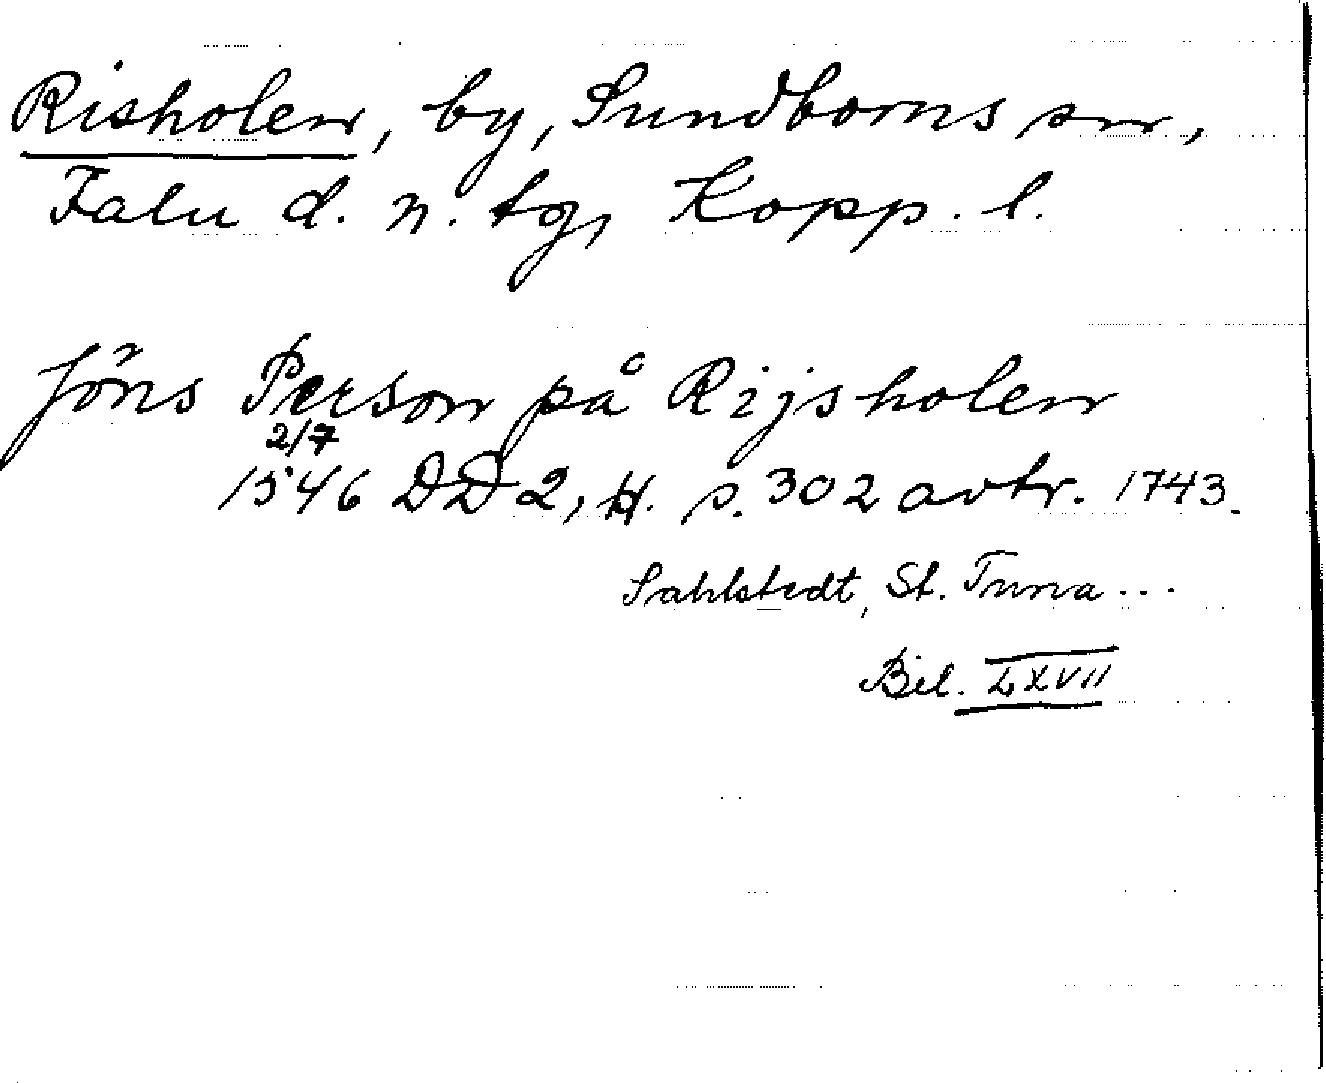 Risholen, by, Sundborns sn,
Falu d. n. tg, Kopp. l.
Jöns Person på Rijsholen
2/7
1546 DD 2, H. s. 302 avtr. 1743.
Sahlstedt, St. Tuna...
Bil. LXVII